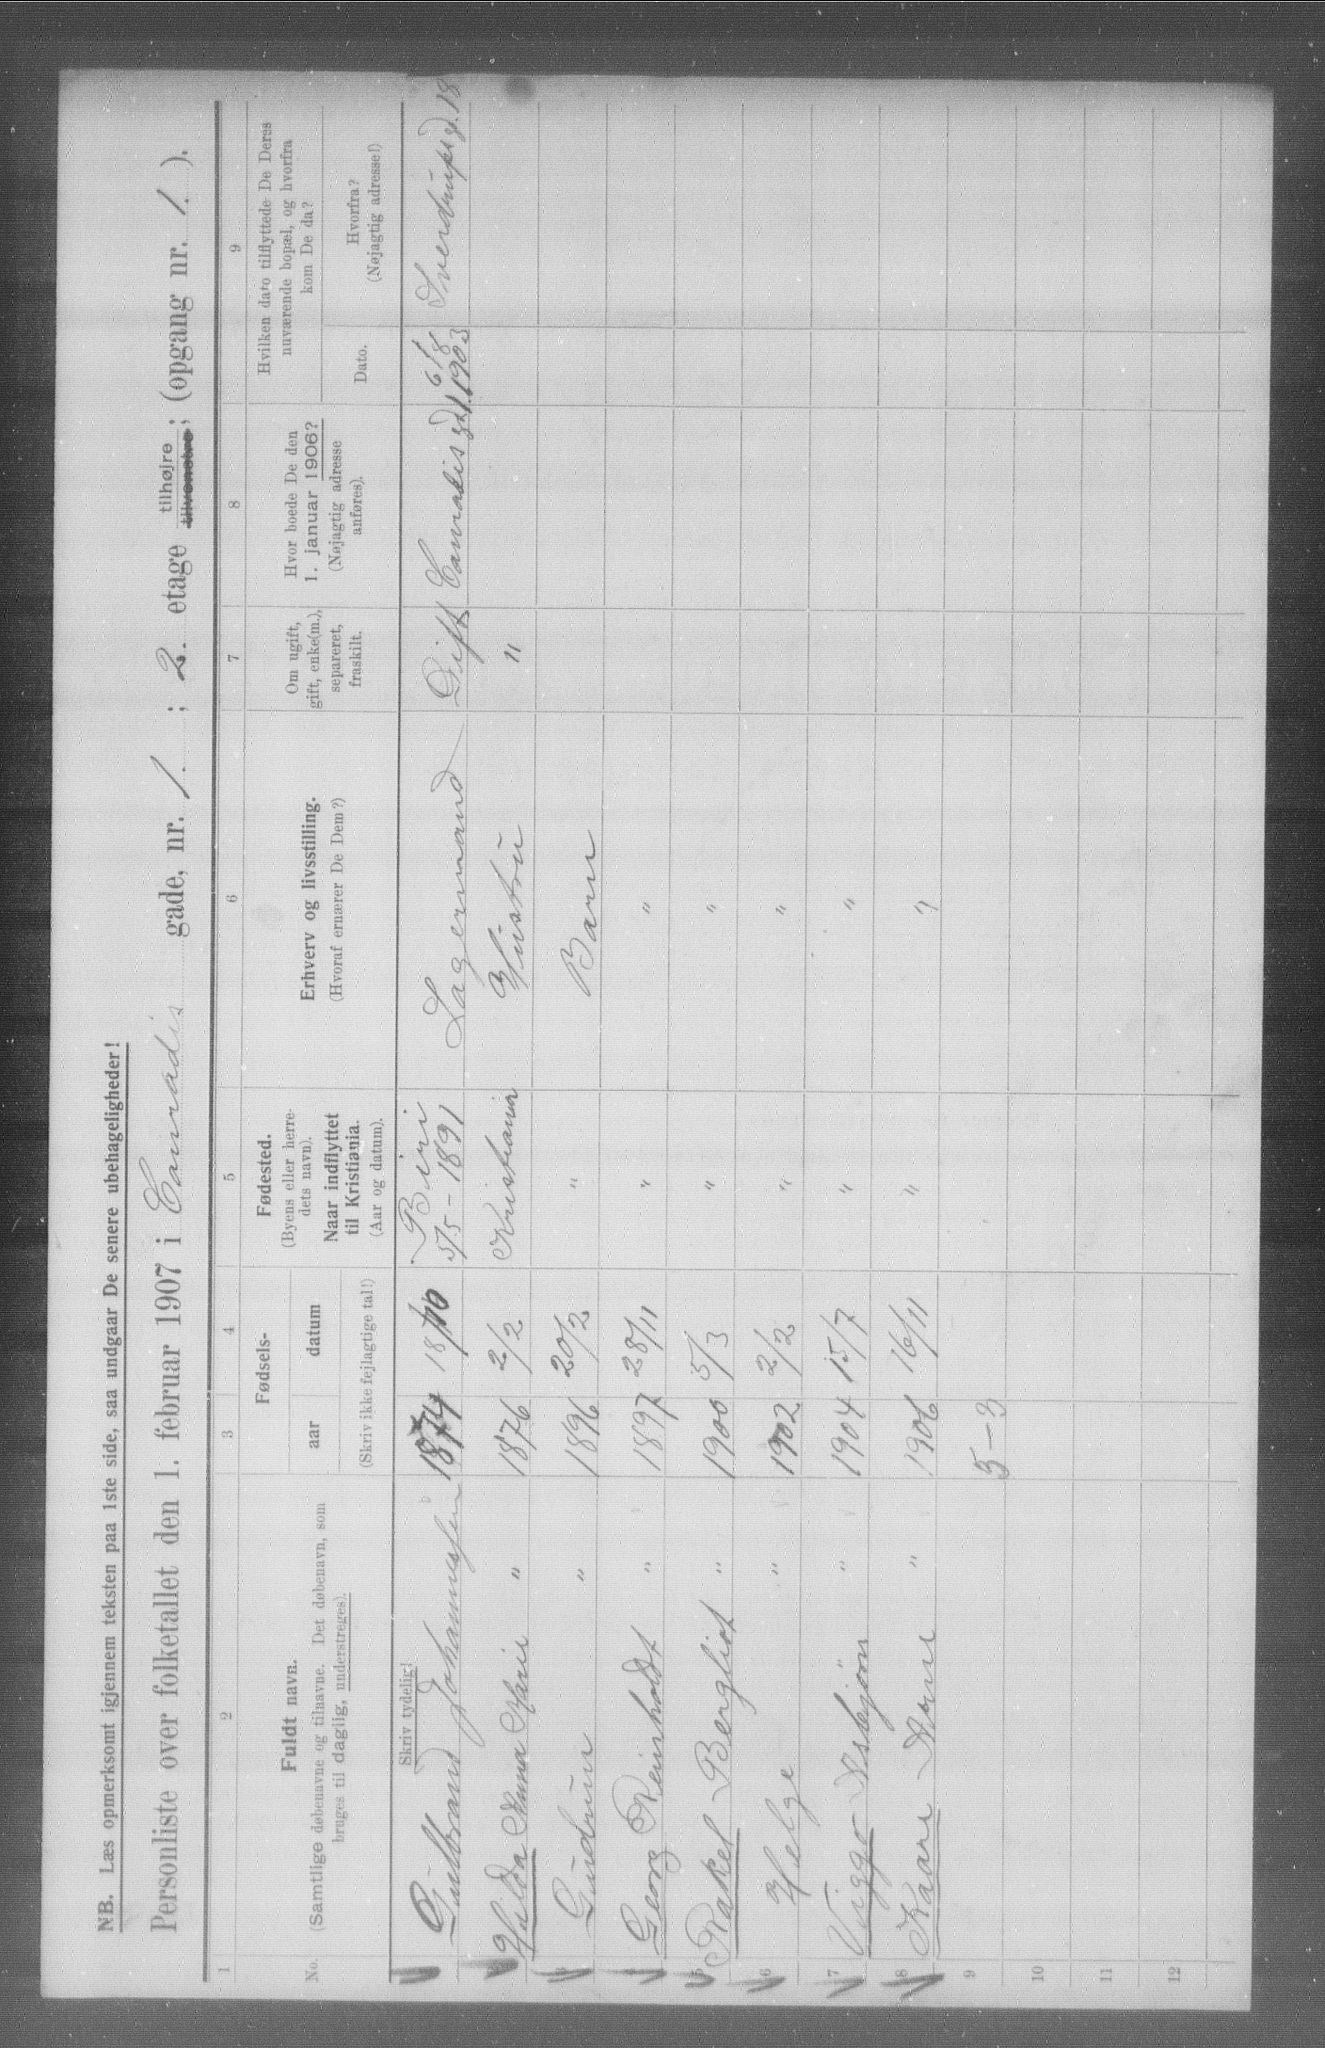 NB. Læs opmerksomt igjennem teksten paa 1ste side, saa undgaar De senere ubehageligheder!
Personliste over folketallet den 1. februar 1907 i Conradis gade, nr. 1. ; 2. etage tilhøjre tilvenstre; (opgang nr. 1. ).
1 2 3 4 5 6 7 8 9
No.
Fuldt navn.
(Samtlige døbenavne og tilnavne. Det døbenavn, som
bruges til daglig, understreges).
Fødsels-
aar datum
(Skriv ikke fejlagtige tal!)
Fødested.
(Byens eller herre-
dets navn).
Naar indflyttet
til Kristiania.
(Aar og datum).
Erhverv og livsstilling.
(Hvoraf ernærer De Dem?)
Om ugift,
gift, enke(m.),
separeret,
fraskilt.
Hvor boede De den
1. januar 1906?
(Nøjagtig adresse
anføres).
Hvilken dato tilflyttede De Deres
nuværende bopæl, og hvorfra
kom De da?
Dato.
Hvorfra?
(Nøjagtig adresse!)
Skriv tydelig!
Gulbrand Johannessen 1874 18/10 Biri 5/5-1891 Lagermand Gift Conradis gd. 1. 6/8 1903 Sverdrupsgd. 18
Hilda Anna Marie " 1876 2/2 Kristiania Hustru "
3 Gudrun " 1896 20/2 " Barn
4 Georg Reinholdt " 1897 28/11 " "
5 Rakel Bergliot " 1900 5/3 " "
6 Helge " 1902 2/2 " "
7 Viggo Asbjørn " 1904 15/7 " "
8 Kaare Arne " 1906 16/11 " "
9 5-3
10
11
12